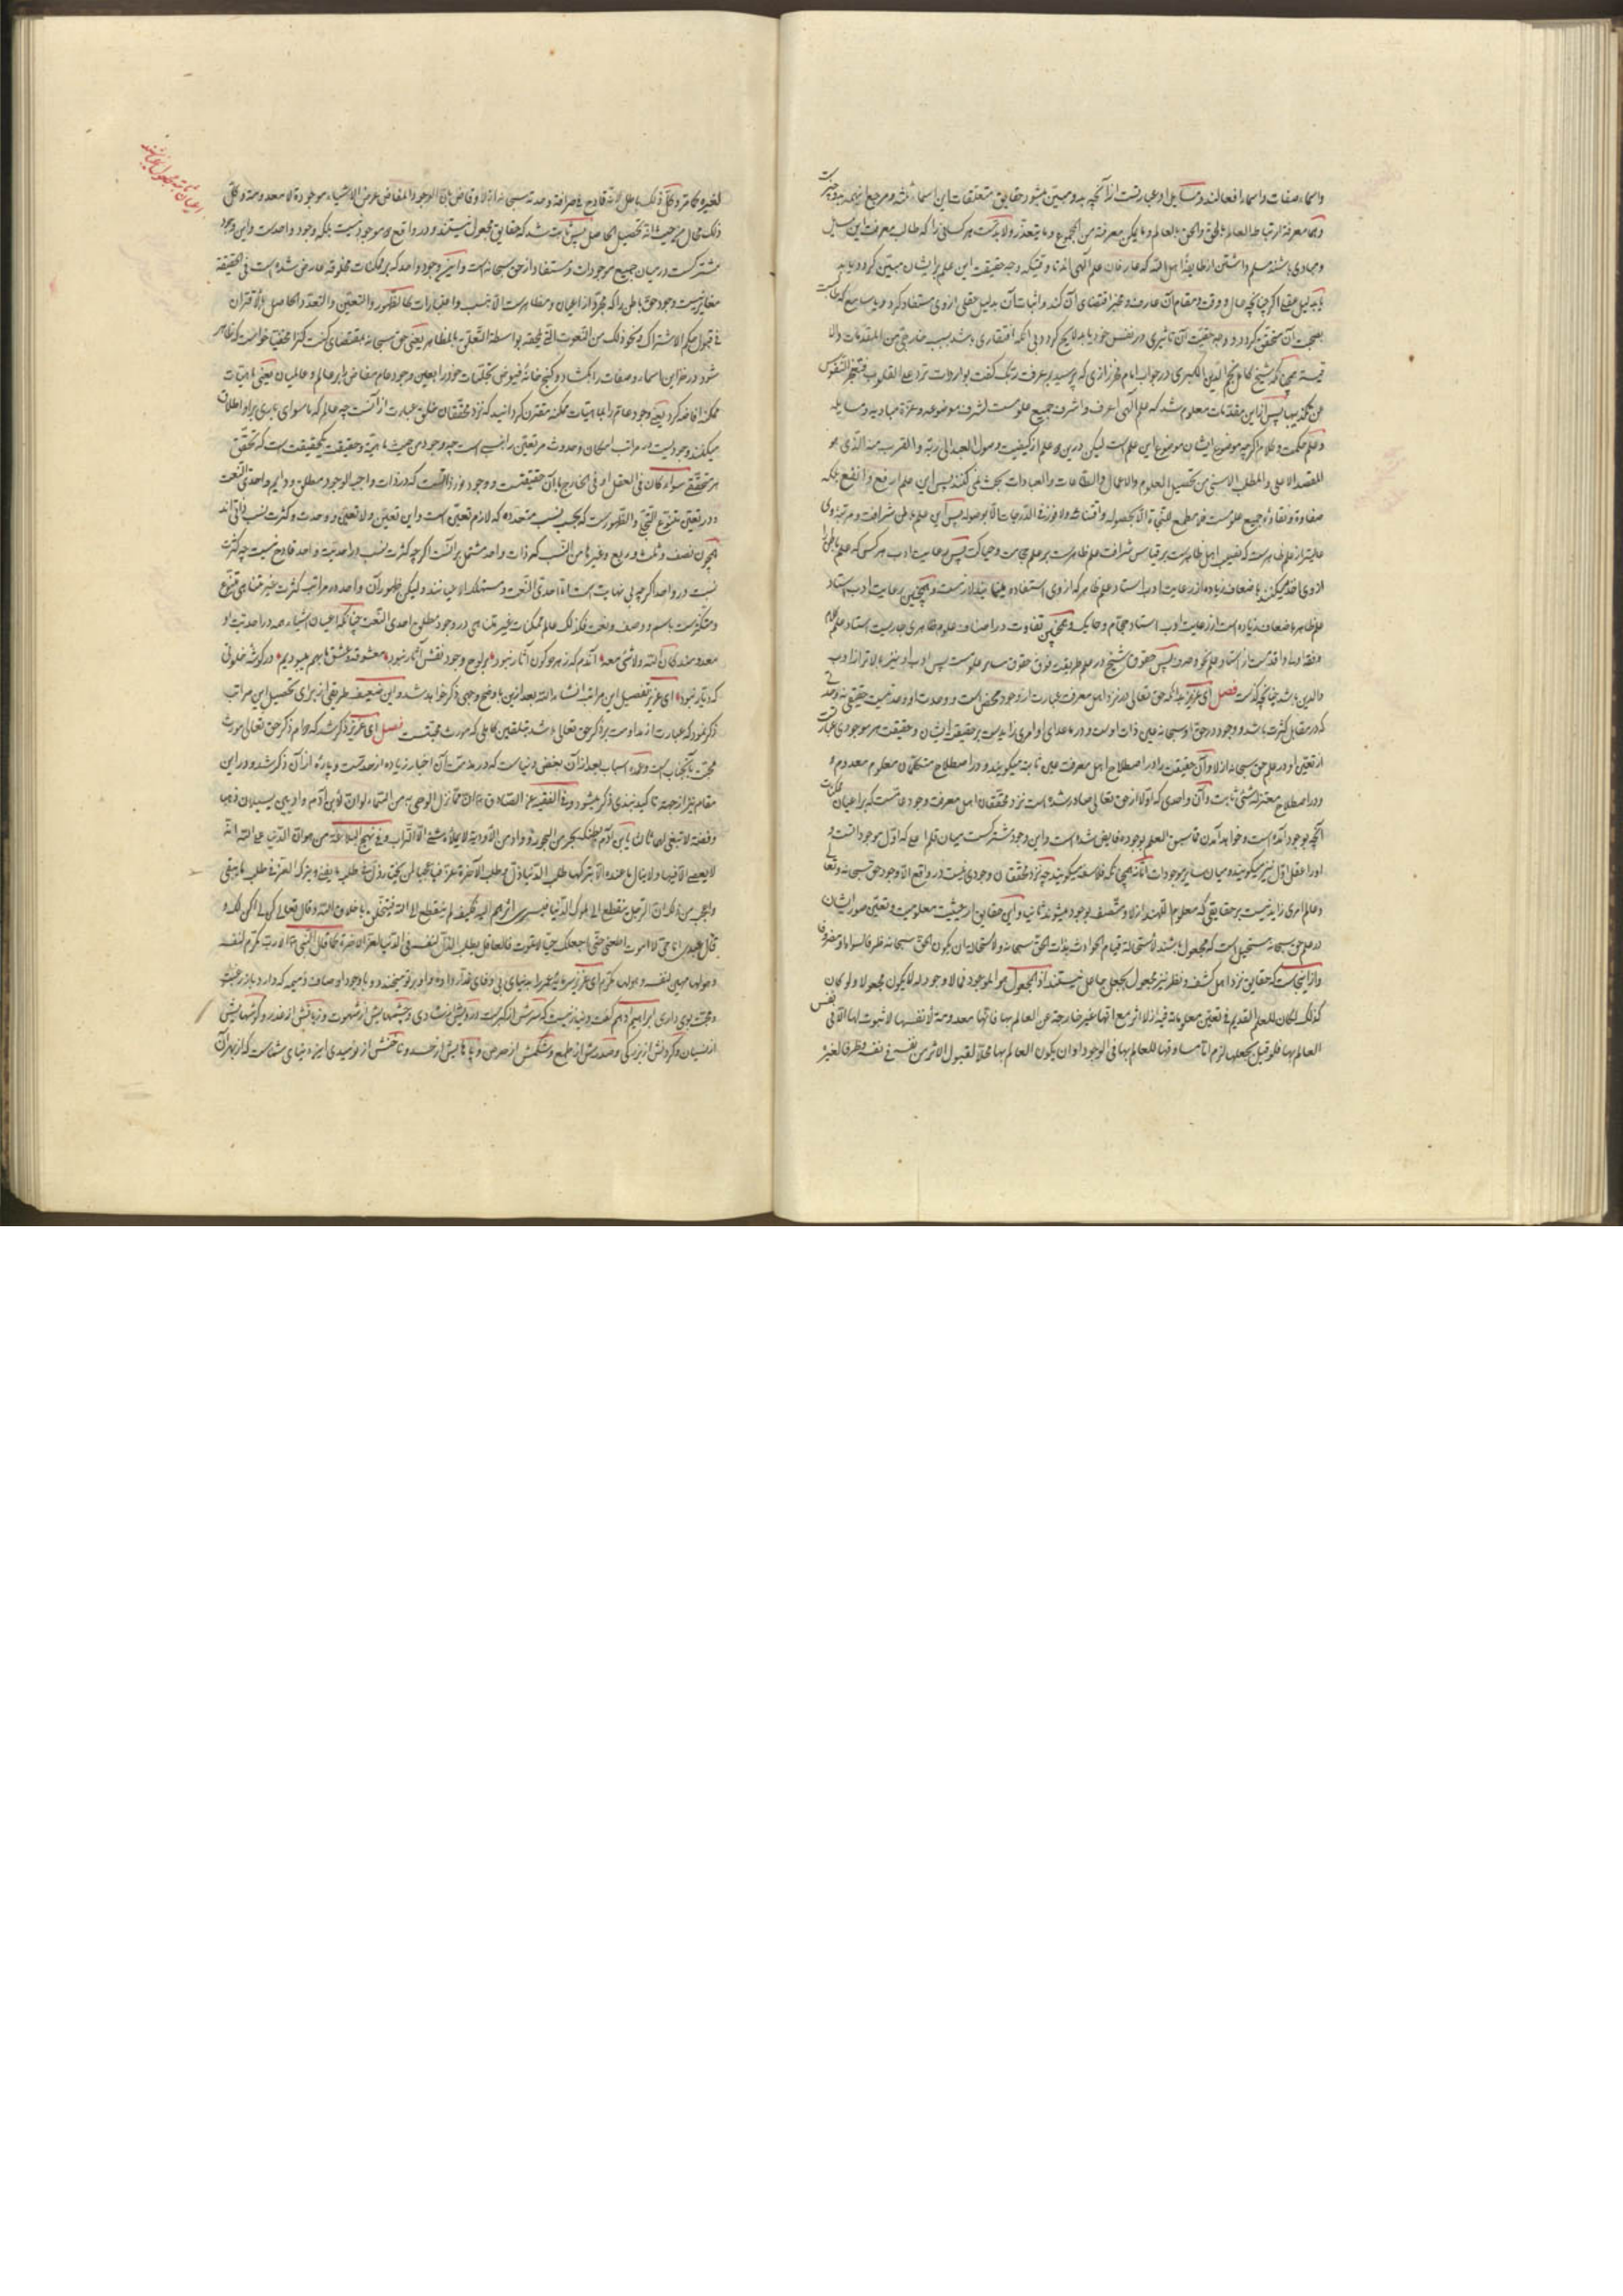 واسماء صفات واسماء افعالند ومسایل او عبارتست از آنچه بدو مبین میشود حقایق متعلقات این اسماء ثلثه ومرجع این همه بدو چیزست
وهما معرفة ارتباط العالم بالحق والحق بالعالم وما یمکن معرفته من المجموع وما یتعذر ولابدست هر کسانی را که طالب معرفت این سبیل
ومبادی باشند مسلم داشتن از طایفهٔ اهل الله که عارفان علم الهی اند تا وقتیکه وجه حقیقت این علم برایشان مبین گردد
یا بدلیل عقلی اگر چنانچه حال ووقت ومقام آن عارف ومخبر اقتضای آن کند واثبات آن بدلیل عقلی ازوی مستفاد گردد ویا سامع که طالبست
بصحت آن متحقق گردد ووجه حقیت آن تاثیری در نفس خود یابد لایح گردد بی آنکه افتقاری باشد بسبب خارجی من المقدمات والا
قیسة همچنانکه شیخ کامل نجم الدین الکبری در جواب امام فخر رازی که پرسید بم عرفت ربک گفت بواردات ترد علی القلوب فتعجز النفوس
عن تکذیبها پس از این مقدمات معلوم شد که علم الهی اعرف واشرف جمیع علومست لشرف موضوعه وعزة مبادیه ومسایله
وعلم حکمت وکلام اگرچه موضوع ایشان موضوع این علم است لیکن درین دو علم از کیفیت وصول العبد الی ربه والقرب منه الذی هو
المقصد الاعلی والمطلب الاسنی من تحصیل العلوم والاعمال والطاعات والعبادات بحث نمی کنند پس این علم ارفع وانفع بلکه
صفاوه ونقاوهٔ جمیع علومست فهو مطمع للنجاة الا بحصوله واقتنائه ولا فوز فی الدرجات الا بوصوله پس این علم باطن شرافت ومرتبهٔ وی
عالیتر از علم ظاهرست که نصیب اهل ظاهرست بر قیاس شرافت علم ظاهرست بر علم حجامت وحیاکت پس رعایت ادب هر کسی که علم باطن را
ازوی اخذ میکنند باضعاف زیاده از رعایت ادب استاد علم ظاهر که ازوی استفاده علم مینماید لازمست وهمچنین رعایت ادب استاد
علم ظاهر باضعاف زیاده است از رعایت ادب استاد حجام وحایک وهمچنین تفاوت در اصناف علوم ظاهری جاریست استاد علم کلام
وفقه اولی واقدمست از استاد علم نحو وصرف پس حقوق شیخ در علم طریقت فوق حقوق سایر علومست پس ادب او نیز بالاتر از ادب
والدین باشد چنانچه گذشت فصل ای عزیز بدانکه حق تعالی در نزد اهل معرفت عبارت از وجود محضست ووحدت او وحدتیست حقیقی نه وحدتی
که در مقابل کثرت باشد ووجود در حق او سبحانه عین ذات اوست ودر ماعدای او امری زایدست بر حقیقة ایشان وحقیقت هر موجودی عبارتست
از تعین او در علم حق سبحانه ازلا وآن حقیقت را در اصطلاح اهل معرفت عین ثابته میگویند ودر اصطلاح متکلمان معلوم معدوم
ودر اصطلاح معتزله شیٔ ثابت وآن واحدی که اولا از حق تعالی صادر شده است نزد محققان اهل معرفت وجود عامست که بر اعیان ممکنات
آنچه بوجود آمده است وخواهد آمدن فاسبق العلم بوجوده فایض شده است واین وجود مشترکست میان قلم اعلی که اول موجوداتست و
اورا عقل اول نیز میگویند ومیان سایر موجودات الا نه همچنانکه فلاسفه میگویند چه نزد محققان وجودی نیست در واقع الا وجود حق سبحانه وتعالی
وعالم امری زاید نیست بر حقایقی که معلوم اللهند ازلا ومتصف بوجود میشوند ثانیا واین حقایق از حیثیت معلومیت وتعین صور ایشان
در علم حق سبحانه مستحیل است که مجعول باشند لاستحالة قیام الحوادث بذات الحق سبحانه ولاستحالة ان یکون الحق سبحانه ظرفا لسواه او مظروفا
وازاینجاست که حقایق نزد اهل کشف ونظر نیز مجعول بجعل جاعل نیستند اذ المجعول هو الموجود فما لا وجود له لا یکون مجعولا ولو کان
کذلک لکان للعلم القدیم فی تعین معلوماته فیه ازلا اثر مع انها غیر خارجة عن العالم بها فانها معدومة لانفسها لا ثبوت لها الا فی نفس
العالم بها فلو قیل بجعلها لزم اما مساوقتها للعالم بها فی الوجود او ان یکون العالم بها محلا لقبول الاثر من نفسه فی نفسه وظرفا لغیره
لغیره کما مر وکل ذلک باطل لانه قادح فی صرافة وحدته سبحانه ازلا وقاض بان الوجود المفاض عرض لاشیاء موجودة لا معدومة وکل
ذلک محال من حیث انه تحصیل الحاصل پس ثابت شد که حقایق مجعول نیستند ودر واقع دو موجود نیست بلکه وجود واحدست واین وجود
مشترکست در میان جمیع موجودات ومستفاد از حق سبحانه است واین وجود واحد که بر ممکنات مخلوقه عارض شده است فی الحقیقة
مغایر نیست وجود حق باطن را که مجردا از اعیان ومظاهرست الا بنسب واعتبارات کالظهور والتعین والتعدد الحاصل بالاقتران
فی قبول حکم الاشتراک ونحو ذلک من النعوت التی یلحقه بواسطة التعلق بالمظاهر یعنی حق سبحانه بمقتضای کنت کنزا مخفیا خواست که ظاهر
شود در خزاین اسماء وصفات را بگشاد وگنج خانهٔ فیوض تجلیات خود را بعین وجود عام مفاض بر عالم وعالمیان یعنی ماهیات
ممکنه افاضه کرد یعنی وجود عام را بماهیات ممکنه مقترن گردانید که نزد محققان خلق عبارت از آنست چه عالم که ماسوای باری برو اطلاق
میکنند وجودیست در مراتب امکان وحدوث مر تعین را نسب است چه وجود من حیث ماهیة وحقیقت یکحقیقت است که تحقق
هر متحقق سواء کان فی العقل او فی الخارج بآن حقیقتست ووجود وزد آنست که در ذات واجب الوجود مطلق ودایم واحدی النعت
ودر تعین متنوع التجلی والظهورست که بحسب نسب متعدده که لازم تعین است واین تعین ولا تعین ووحدت وکثرت نسب ذاتی اند
همچون نصف وثلث وربع وغیرها من النسب که ذات واحد مشتمل بر آنست اگرچه کثرت نسب در احدیت واحد قادح نیست چه کثرت
نسبت در واحد اگرچه بی نهایت است اما احدی النعت ومستهلک الاعیانند ولیکن ظهور آن واحد در مراتب کثرت غیر متناهی متنوع
ومتکثرست باسم ووصف ونعت فکذلک عالم ممکنات غیر متناهی در وجود مطلق احدی النعت چنانکه اعیان اشیاء همه در احدیت او
معدومند کان الله ولا شیٔ معه آندم که زهر دو کون آثار نبود بر لوح وجود نقش اغیار نبود معشوقه وعشق ما بهم میبودیم در گوشهٔ خلوتی
که دیار نبود ای عزیز تفصیل این مراتب انشاء الله بعد ازین باوضح وجهی ذکر خواهد شد واین ضعیف طریقی از برای تحصیل این مراتب
ذکر نمود که عبارت از مداومت بر ذکر حق تعالی باشد بتلقین کاملی که مورث محبتست فصل ای عزیز ذکر شد که دوام ذکر حق تعالی مورث
محبت بآنجناب است وعمده اسباب بعد از آن بغض دنیاست که در مذمت آن اخبار زیاده از حدست وپارهٔ از آن ذکر شد ودر این
مقام نیز از جهة تاکید نبذی ذکر میشود وفی الفقیه عن الصادق ان مما نزل الوحی به من السماء لو ان لابن آدم وادیین یسیلان ذهبا
وفضة لابتغی لهما ثالثا یا بن آدم بطنک بحر من البحور وواد من الاودیة لا یملاه شیٔ الا التراب وفی نهج البلاغة من هوان الدنیا علی الله انه
لا یعصی الا فیها ولا ینال ما عنده الا بترکها طلب الدنیا ذل وطلب الآخرة عزة فیا عجبا لمن یختار ذل فی طلب ما یفنی ویترک العز فی طلب ما یبقی
واعجب من ذلک ان الرجل ینقطع الی ملوک الدنیا فیسری اثرهم الیه فکیف لم ینقطع الی الله فیتخلق باخلاق الله وقال تعالی کن لی اکن لک و
قال عبدی انا حی لا اموت اطعنی حتی اجعلک حیا لا یموت فالعاقل یطلب الذل لنفسه فی الدنیا لعز الآخرة کما قال النبی الا رب مکرم لنفسه
وهو لها مهین لنفسه وهو لها مکرم ای عزیز سرمایهٔ عمر را بدنیای بی وفای غدار داده واو بر تو میخندد وبا وجود اوصاف ذمیمه که دارد باز رغبت
ومحبت بوی داری ابراهیم ادهم گفت دنیا زنیست که سرش از کبرست ورویش از شادی وچشمهایش از شهوت وزبانش از غدر وگوشهایش
از نسیان وگردنش از بزرگی وصدرش از طمع وشکمش از حرص وپاهایش از حسد وناخنش از نومیدی این دنیای شماست که از بهر آن